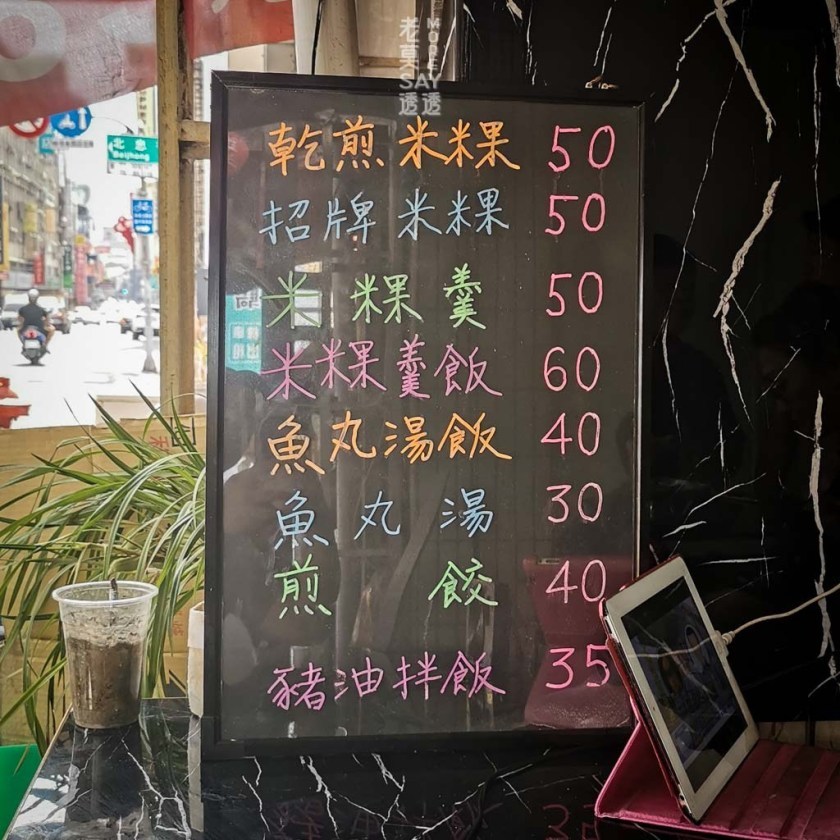 老莫
SAY
透透
MORE
北忠
Beizhong
乾煎米粿 50
招牌米粿 50
米粿羹 50
米粿羹飯 60
魚丸湯飯 40
魚丸湯 30
煎餃 40
豬油拌飯 35